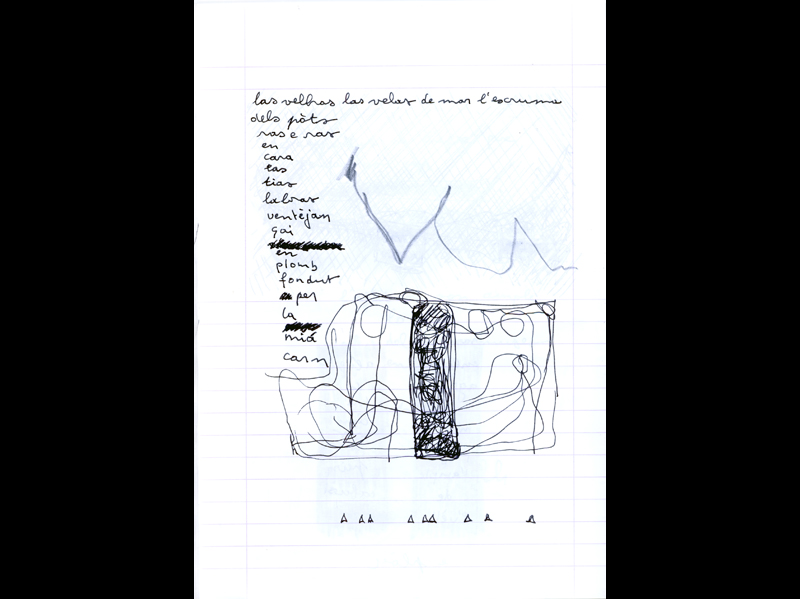 las velhas las velas de mar l'escruma
dels pòts
ras e ras
en
cara
las
tias
labras
ventéjan
gai
en
plomb
fondut
per
la
miá
carn